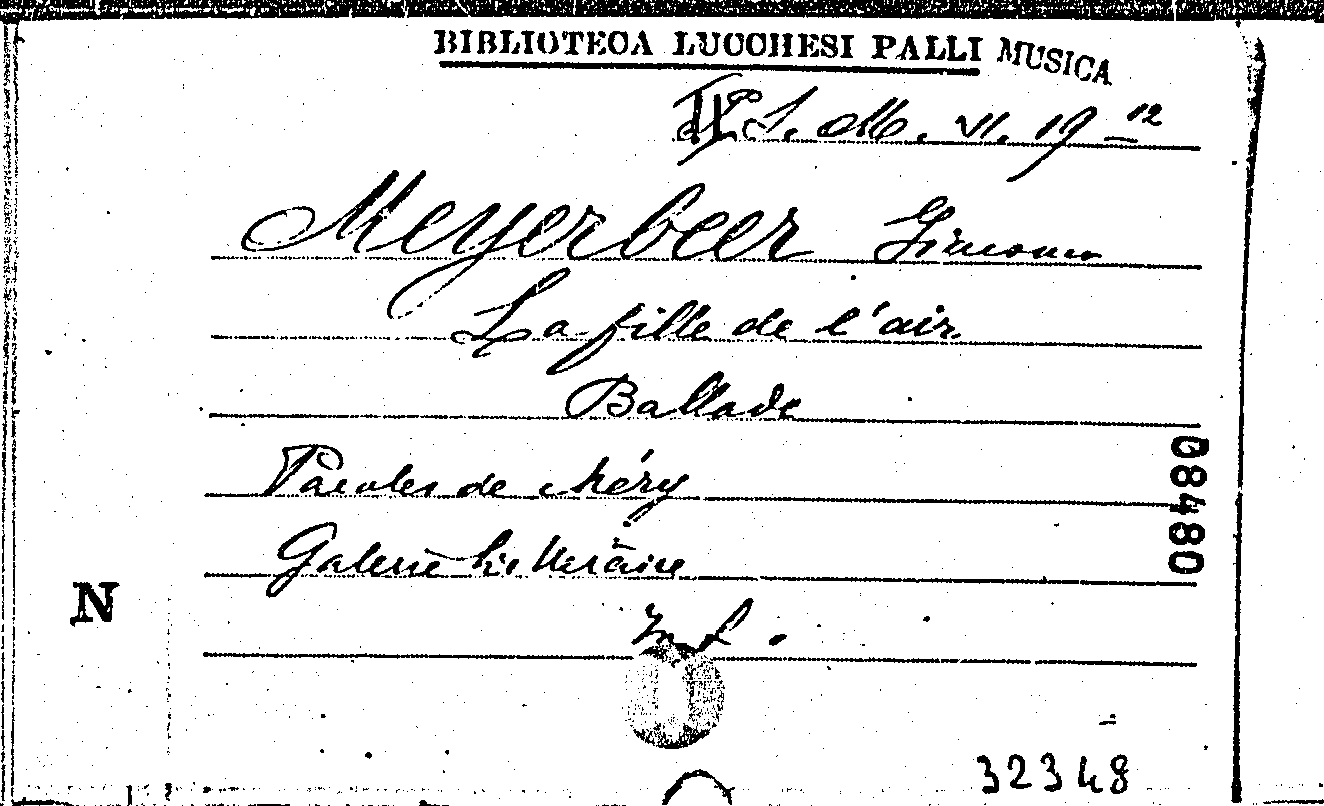 BIBLIOTECA LUCCHESI PALLI MUSICA
S. M. VI. 19 12
Meyerbeer Giacomo
La fille de l'air
Ballade
Paroles de Méry
08480
Galerie
N
32348